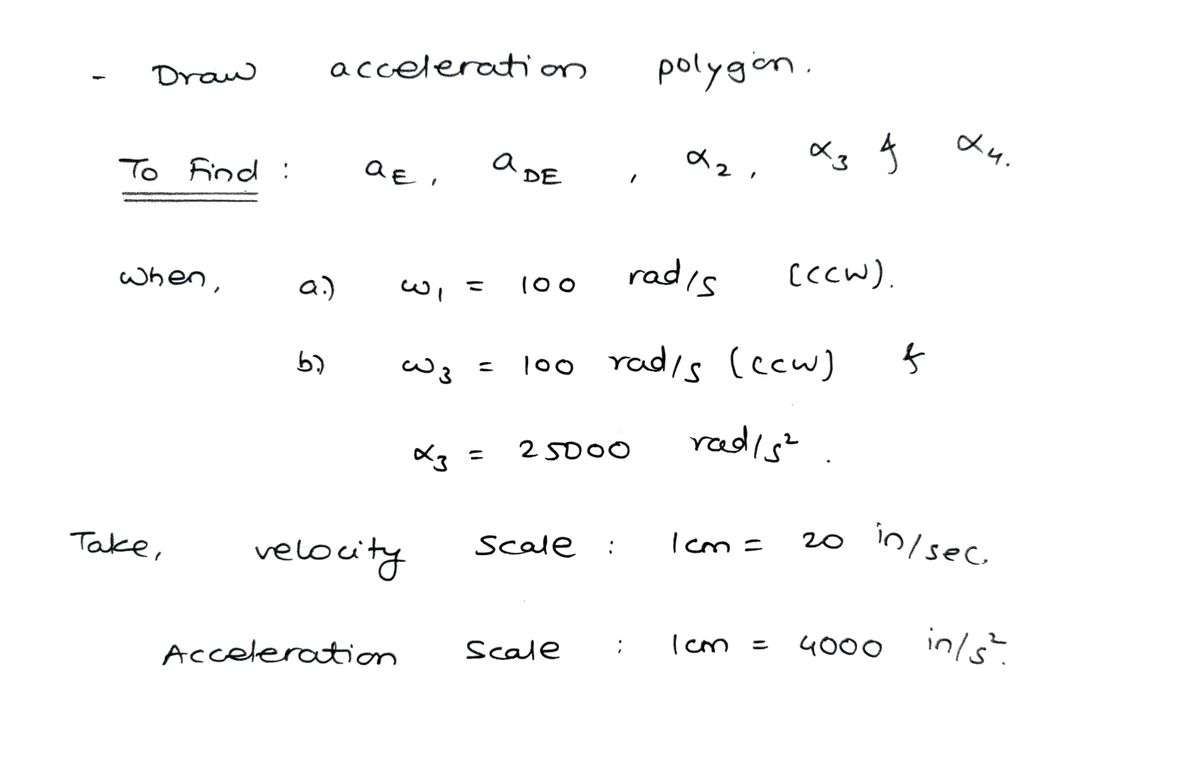 - Draw acceleration polygon.
To Find : aE, aDE, α2, α3 & α4.
when, a.) ω1 = 100 rad/s (ccw).
b) ω3 = 100 rad/s (ccw) &
α3 = 25000 rad/s².
Take, velocity scale : 1cm = 20 in/sec.
Acceleration scale : 1cm = 4000 in/s².